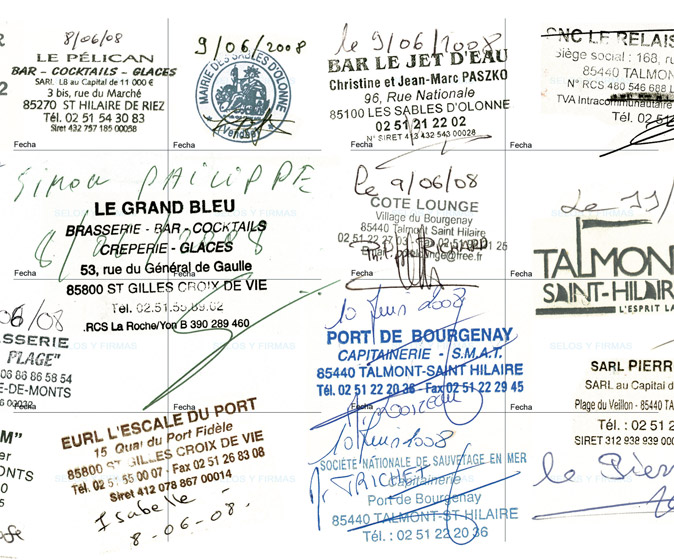 R
2
8/06/08
LE PÉLICAN
BAR - COCKTAILS - GLACES
SARL LB au Capital de 11 000 €
3 bis, rue du Marché
85270 ST HILAIRE DE RIEZ
Tél. 02 51 54 30 83
Siret 432 757 185 00058
Fecha
9/06/2008
MAIRIE DES SABLES D'OLONNE
(Vendée)
Fecha
le 9/06/2008
BAR LE JET D'EAU
Christine et Jean-Marc PASZKO
96, Rue Nationale
85100 LES SABLES D'OLONNE
02 51 21 22 02
N° SIRET 413 432 543 00028
Fecha
SNC LE RELAIS
Siège social : 168, ru
85440 TALMON
N° RCS 480 546 688 L
TVA Intracommunautaire
Tél. 02 5
Fecha
Simon PHILIPPE
SELOS Y FIRMAS
LE GRAND BLEU
BRASSERIE - BAR - COCKTAILS
CREPERIE - GLACES
53, rue du Général de Gaulle
85800 ST GILLES CROIX DE VIE
Tél. 02.51.55.89.02
RCS La Roche/Yon B 390 289 460
Fecha
Fecha
le 9/06/08
COTE LOUNGE
Village du Bourgenay
85440 Talmont Saint Hilaire
Fecha
Le 11/
TALMON
SAINT-HILAIR
L'ESPRIT LA
Fecha
06/08
ASSERIE
PLAGE"
06 86 86 58 54
E-DE-MONTS
SELOS Y FIRMAS
Fecha
10 Juin 2008
PORT DE BOURGENAY
CAPITAINERIE - S.M.A.T.
85440 TALMONT-SAINT HILAIRE
Tél. 02 51 22 20 36 - Fax 02 51 22 29 45
Fecha
SARL PIERR
SARL au Capital de
Plage du Veillon - 85440 TA
Tél. : 02
SIRET 312 938 939 000
M"
er
MONTS
5
EURL L'ESCALE DU PORT
15 Quai du Port Fidèle
85800 ST GILLES CROIX DE VIE
Tél. 02 51 55 00 07 - Fax 02 51 26 83 08
Siret 412 078 867 00014
Isabelle
8-06-08-
10 Juin 2008
SOCIÉTÉ NATIONALE DE SAUVETAGE EN MER
Mr TRICHET
Capitainerie
Port de Bourgenay
85440 TALMONT-ST HILAIRE
Tél. : 02 51 22 20 36